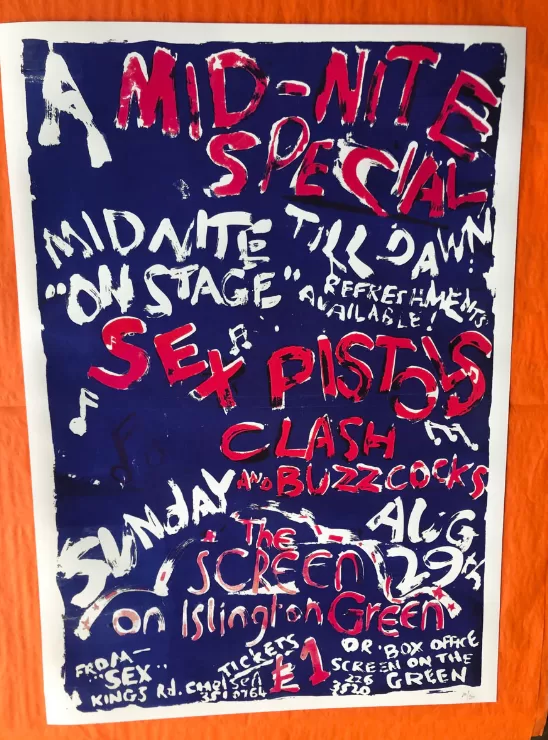 A MID-NITE
SPECIAL
MIDNITE TILL DAWN!
"ON STAGE" REFRESHMENTS
AVAILABLE!
SEX PISTOLS
CLASH
AND BUZZCOCKS
SUNDAY AUG
The 29TH
SCREEN
on Islington Green
FROM— TICKETS OR · BOX OFFICE
"SEX" £1 SCREEN ON THE
KINGS Rd. Chelsea 226 GREEN
351 0764 3520